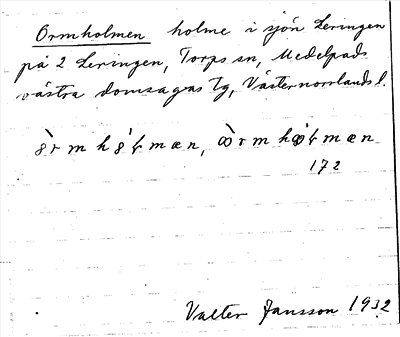 Ormholmen holme i sjön Leringen
på 2 Leringen, Torps sn, Medelpads
västra domsagas tg, Västernorrlands l.
172
Valter Jansson 1932